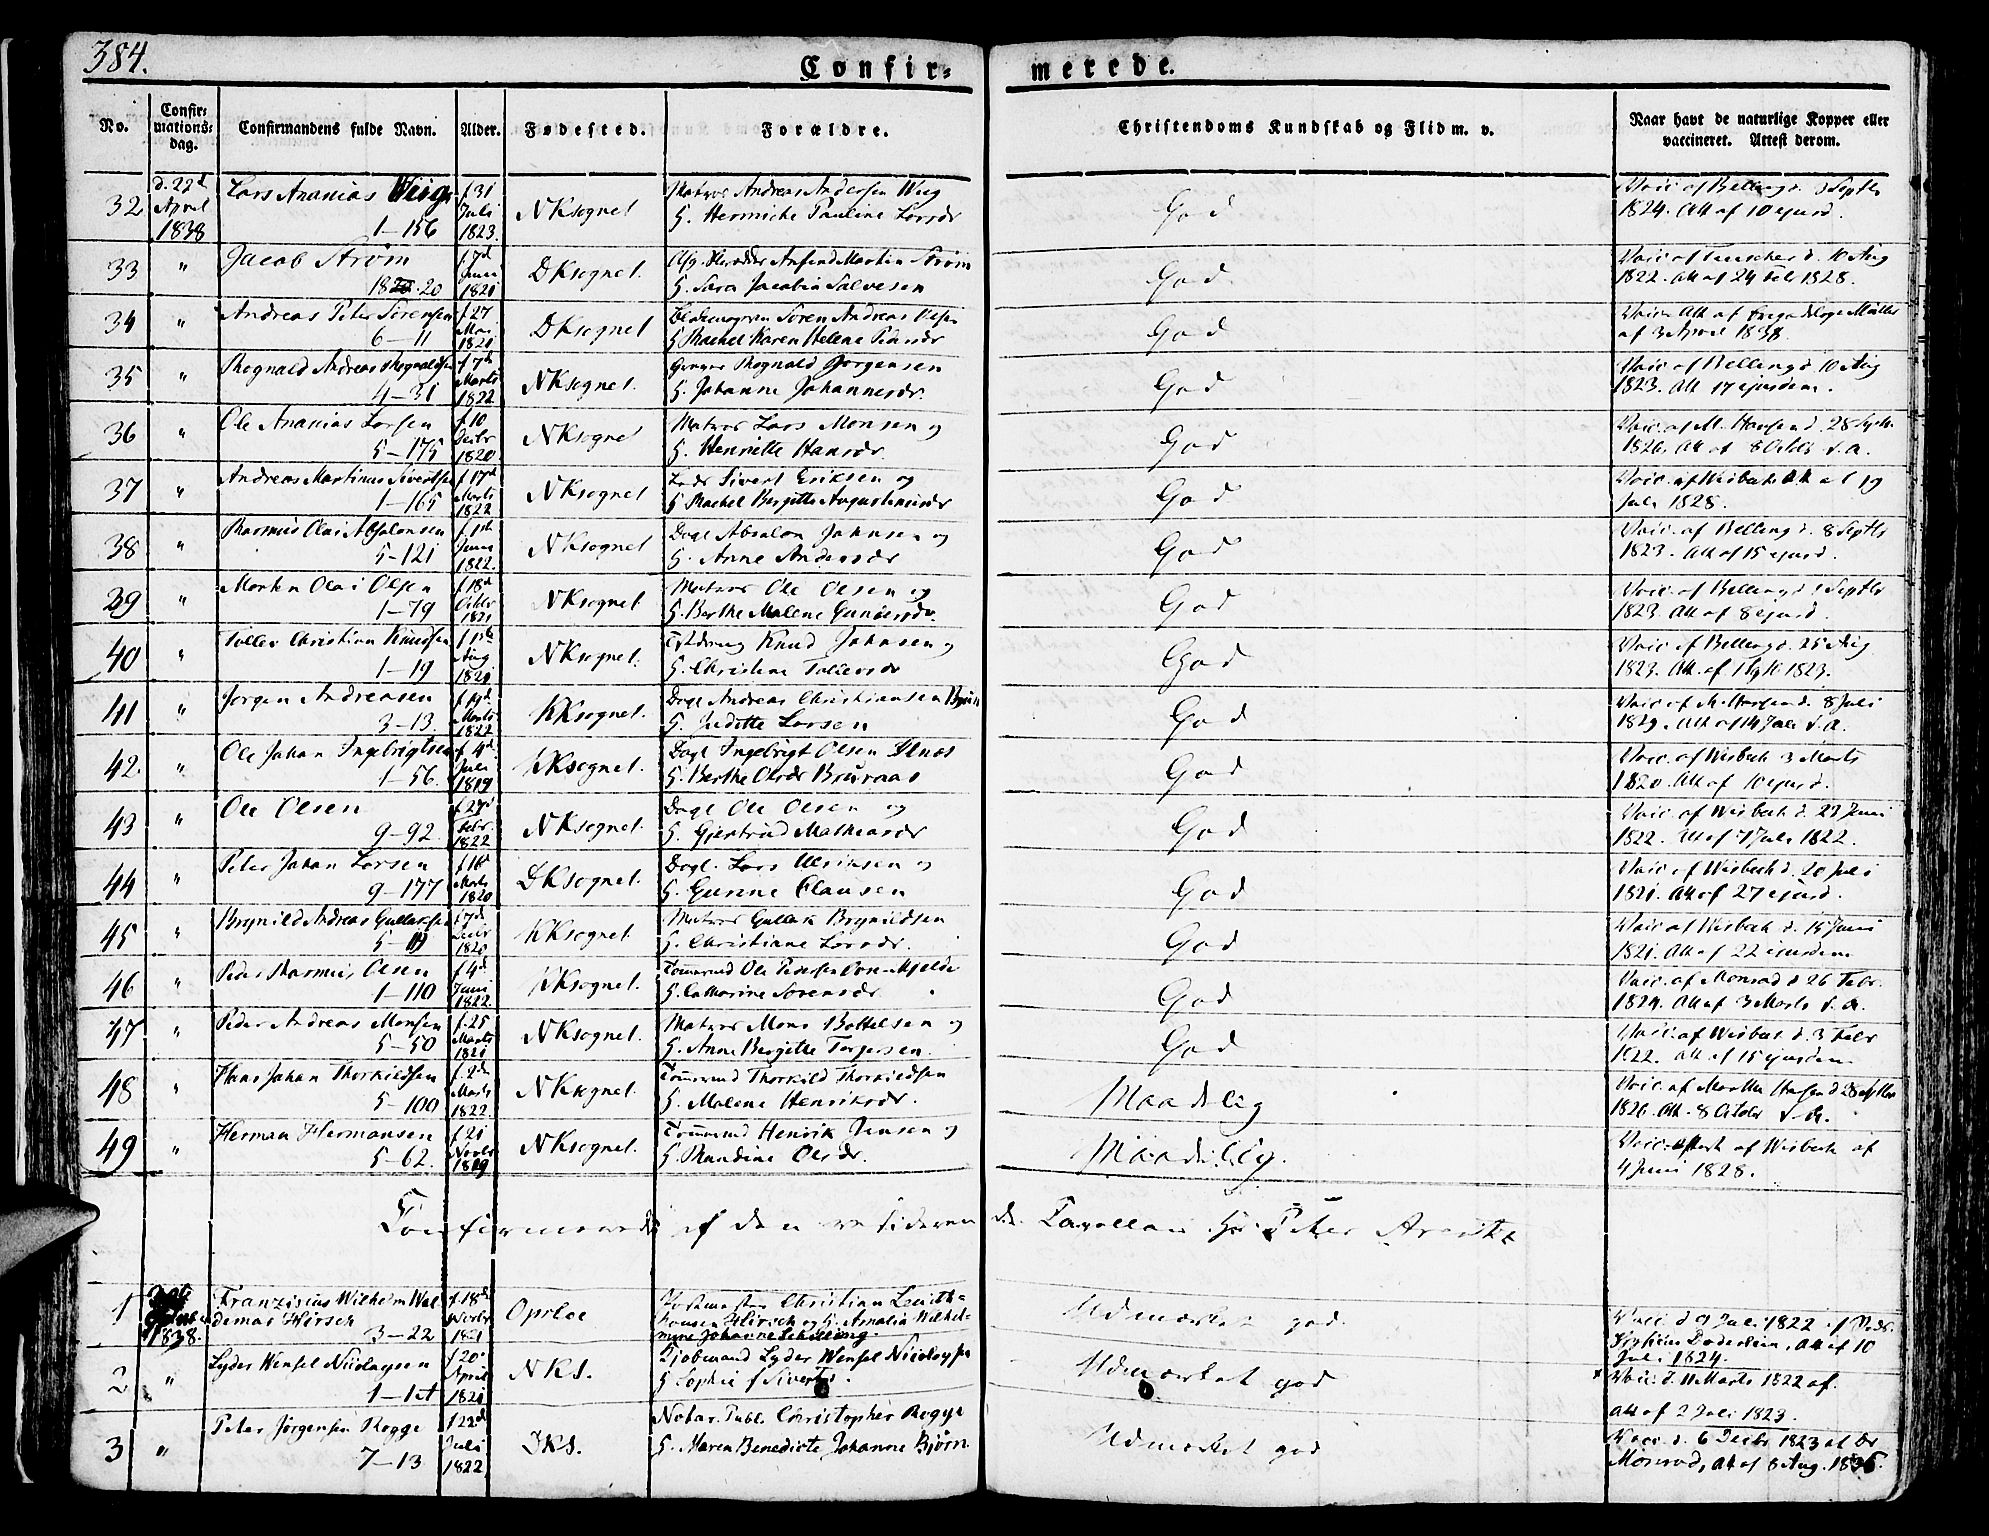 384.
Confir-
merede.
No.
Confir-
mations-
dag.
Confirmandens fulde Navn.
Alder.
Fødested.
Forældre.
Christendoms Kundskab og Flid m. v.
Naar havt de naturlige Kopper eller
vaccineret. Attest derom.
32 d. 22d April 1838 Lars Ananias Wiig 1-156 f. 31 Juli 1823. NKsognet Matros Andreas Andersen Wiig G. Hermiche Pauline Larsdr God Vacc. af Belling d. Septbr 1824. Att af 10 ejusd.
33 " Jacob Strøm 20 f. 7d Juni 1821 DKsognet. Martin Strøm G. Sara Jacobia Salvesen God Vacc. af d. 10 Aug 1822. Att af 24 1828.
34 " Andreas Peter Sørensen 6-11 f. 27 Mai 1821 DKsognet Søren Andreas G Rachel Karen Helene God Vacc. Att af Müller af 3 April 1838.
35 " Rognald Andreas Rognaldsen 4-31 f. 7d Marts 1822 NKsognet. Rognald Jørgensen G. Johanne Johannesdr. God Vacc. af Belling d 10 Aug 1823. Att 17 ejusdem.
36 " Ole Ananias Larsen 5-175 f. 10 Decbr 1820 NKsognet Matros Lars Monsen og G. Henriette Hansdr. God Vacc. af M. Hansen d. 28 Septbr 1826. Att af 8 Octbr s. a.
37 " Andreas Martinus Sivertsen 1-165 f. 17d Marts 1822 NKsognet Sivert Eriksen og G. Rachel Bergitte Augustinusdr God Vacc. af Wisbech Att af 19 Juli 1828.
38 " Rasmus Olai Absalonsen 5-121 f. 1st Juni 1822. NKsognet Dagl Absalon Johnsen og G. Anne Andersdr God Vacc. af Belling d. 8 Septbr 1823. Att af 15 ejusd.
39 " Morten Olai Olsen 1-79 f. 18d Octbr 1821 NKsognet. Matros Ole Olsen og G. Berthe Malene Gundersdr. God Vacc. af Belling d 1 Septbr 1823. Att af 8 ejusd.
40 " Tollev Christian Knudsen 1-19 f. 1st Aug 1821 NKsognet. Knud Johnsen og G. Christine Tollevsdr God Vacc. af Belling d. 25 Aug 1823. Att af 1823.
41 " Jørgen Andreasen 3-13. f. 19d Marts 1822 KKsognet. Dagl Andreas Christiansen G. Judithe Larsen God Vacc. af M. Hansen d. 8 Juli 1829. Att af 14 Juli s. a.
42. " Ole Johan Ingebrigtsen 1-56. f. 4d Juli 1819 KKsognet. Dagl Ingebrigt Olsen G. Berthe Olsdr Bruraas God Vacc. af Wisbech 3 Marts 1820. Att af 10 ejusd.
43 " Ole Olsen 9-92. f. 27d Febr. 1822 NKsognet. Dagl Ole Olsen og G. Gjertrud Mathiasdr God Vacc. af Wisbech d. 27 Juni 1822. Att af 7 Juli 1822.
44 " Peter Johan Larsen 9-177 f. 16d Marts 1820 DKsognet. Dagl. Lars Ulriksen og G. Gurine Clausen God Vacc af Wisbech d. 20 Juli 1821. Att af 27 ejusd.
45 " Brynild Andreas Gullaksen 5-19 f. 7d Decbr 1820 KKsognet. Matros Gullak Brynildsen G. Christiane Larsdr. God Vacc af Wisbech d. 15 Juni 1821. Att af 22 ejusdem
46 " Peder Rasmus Olsen 1-110 f. 4d. Juni 1822. KKsognet. Tømmermd Ole Pedersen G. Catharine Sørensdr. God Vacc. af Monrad d 26 Febr. 1824. Att af 3 Marts s. a.
47 " Peder Andreas Monsen 5-50 f. 25 Marts 1821 NKsognet. Matros Mons Bottelsen og G. Anne Bergitte Torgersen. God Vacc. af Wisbech d. 3 Febr 1822. Att af 15 ejusdem
48 " Hans Johan Thorkildsen 5-100 f. 2d Marts 1822. NKsognet. Tømmermd Thorkild Thorkildsen G. Malene Henriksdr. Maadelig Vacc. af Marthe Hansen d 28 Septbr 1826. Att. 8 Octobr s. a.
49 " Herman Hermansen 5-62. f. 21 Novbr 1819 NKsognet. Tømmermd Henrik Jensen og G. Randine Olsdr. Maadelig. Vacc. attest af Wisbech af 4 Juni 1828.
Confirmerede af den residerende Capellan Hr Peter Arentz
1 1838. Franziscus Wilhelm Waldemar Hirsch 3-22 f. 18d Novbr 1821 Christian Hirsch og G. Amalia Wilhelmine Johanne Schilling. Udmærket god. Vacc. d 9 Juli 1822 Att af 10 Juli 1824.
2 " Lyder Wensel Nicolaysen f. 20d April 1821 NKS. Kjøbmand Lyder Wensel Nicolaysen G Sophie f Sivertz. Udmærket god Vacc. d. 11 Marts 1822 af. Att af 2 Juli 1823.
3 " Peter Jørgensen Rogge 7-13 f 22d Juli 1822 DKS. Notar. Publ. Christopher Rogge G. Maren Benedicte Johanne Bjørn. Udmærket god Vacc. d. 6 Decbr 1823 af Dr Monrad, Att af 8 Aug. 1836.